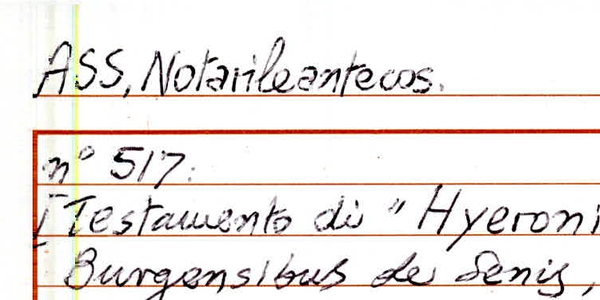 ASS, Notarile antecos.
n° 517:
[Testamento di "Hyeroni
Burgensibus de Senis,